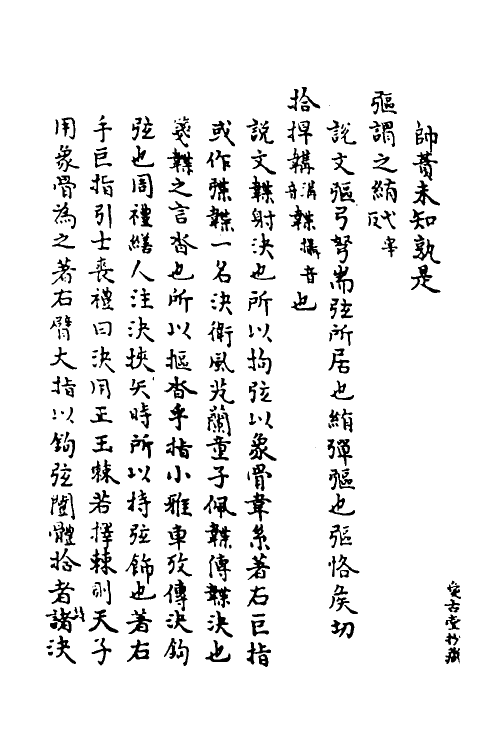 帥蕡未知孰是
彄謂之䋹弋宰反
說文彄弓弩耑弦所居也䋹彈彄也彄恪矦切
拾捍韝溝音韘攝音也
說文韘射決也所以拘弦以象骨韋系著右巨指
或作弽韘一名決衛風芄蘭童子佩韘傳韘決也
箋韘之言沓也所以彄沓手指小雅車攻傳決鉤
弦也周禮繕人注決挾矢時所以持弦飾也著右
手巨指引士喪禮曰決用正王棘若擇棘則天子
用象骨為之著右臂大指以鉤弦闓體拾者諸決
愛古堂抄藏